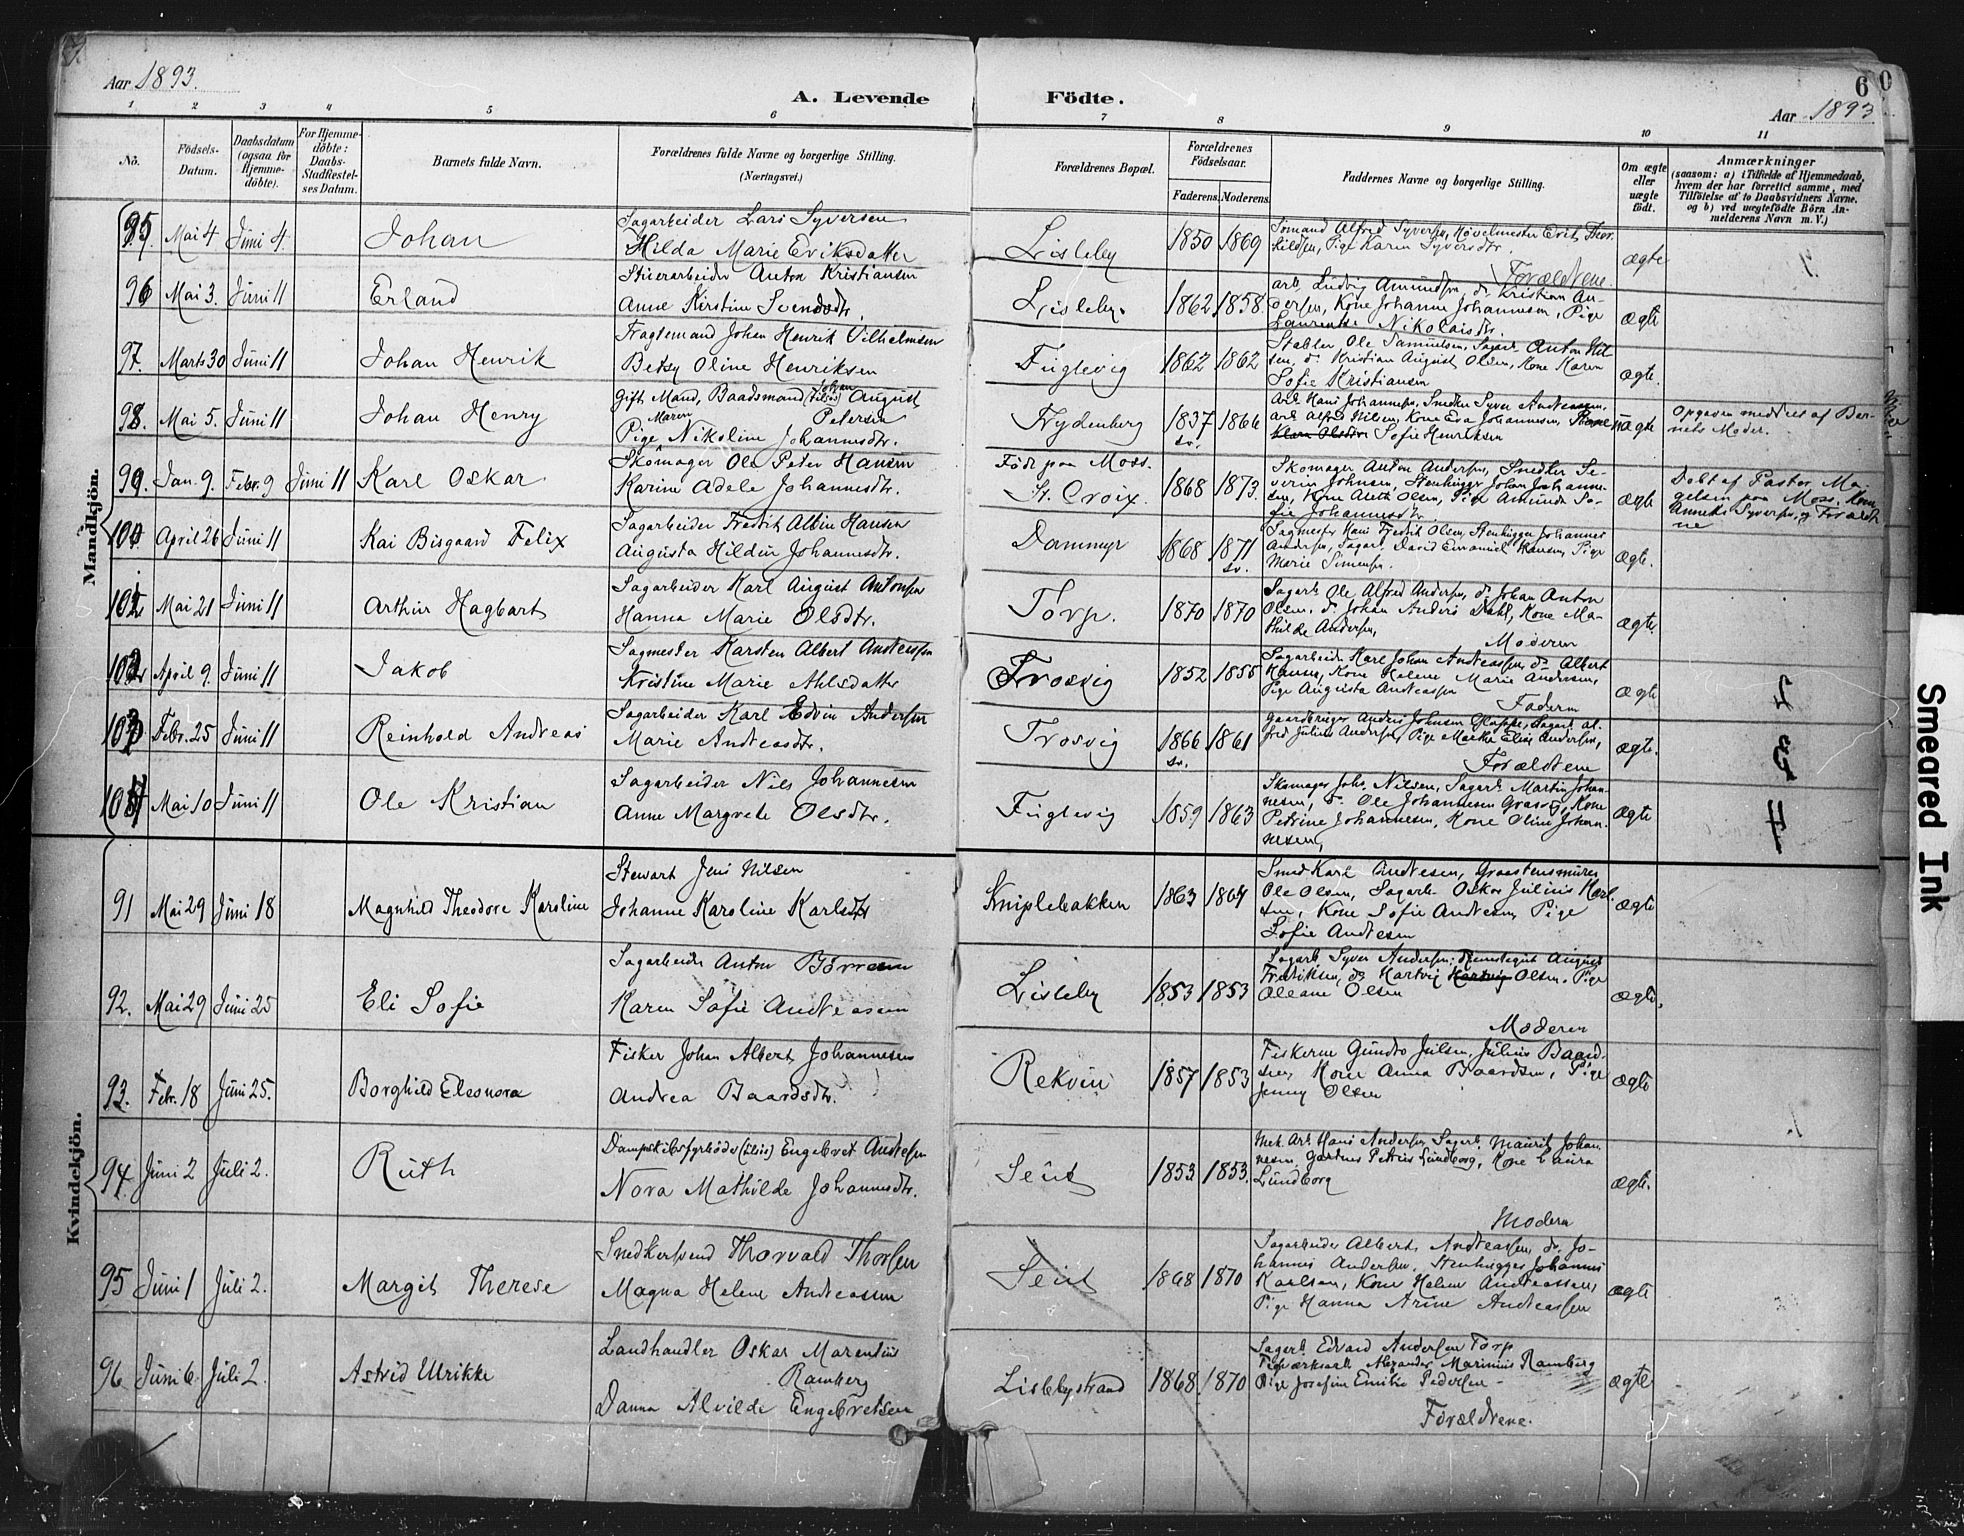 Aar 1893.
A. Levende Födte.
6
Aar 1893
1 2 3 4 5 6 7 8 9 10 11
No.
Födsels-
Datum.
Daabsdatum
(ogsaa for
Hjemme-
döbte).
For Hjemme-
döbte:
Daabs-
Stadfæstel-
ses Datum.
Barnets fulde Navn.
Forældrenes fulde Navne og borgerlige Stilling.
(Næringsvei.)
Forældrenes Bopæl.
Forældrenes
Födselsaar.
Faderens. Moderens.
Faddernes Navne og borgerlige Stilling.
Om ægte
eller
uægte
födt.
Anmærkninger
(saasom: a) i Tilfælde af Hjemmedaab,
hvem der har forrettet samme, med
Tilföielse af to Daabsvidners Navne.
og b) ved uægtefödte Börn An-
melderens Navn m. V.)
Mandkjön.
95. Mai 4 Juni 4. Johan
Sagarbeider Lars Syversen
Hilda Marie Eriksdatter
Lisleby 1850 1869
Sömand Alfred Syversen, Hövelmester Erik Thor-
kildsen, Pige Karen Syversdtr.
Forældrene
ægte
96 Mai 3. Juni 11 Erland
Stuerarbeider Anton Kristiansen
Anne Kirstine Svendsdtr.
Lisleby. 1862 1858.
Arb. Ludvig Amundsen, do Kristian An-
dersen, Kone Johanne Johannesen, Pige
Laurentse Nikolaisdtr.
ægte
97. Marts 30 Juni 11 Johan Henrik
Fragtemand Johan Henrik Vilhelmsen
Betzy Oline Henriksen
Fuglevig 1862 1862
Stabler Ole Samuelsen, Sagarb. Anton Nil-
sen, do Kristian August Olsen, Kone Karen
Sofie Kristiansen
ægte.
98. Mai 5. Juni 11 Johan Henry
Gift Mand, Baadsmand Johan August
Petersen
Pige Maren Nikoline Johannesdtr.
Frydenberg 1837 1866
sv.
Arb. Hans Johannesen, Snedker Syver Andreassen,
arb. Alfred Nilsen, Kone Eva Johannesen,
Sofie Henriksen
uægte
Opgaven meddeles af Bar-
nets Moder.
99. Jan. 9. Febr. 9 Juni 11 Karl Oskar
Skomager Ole Peter Hansen
Karine Adele Johannesdtr.
Född paa Moss.
St. Croix. 1868 1873.
Skomager Anton Andersen, Snedker Se-
verin Johnsen, Stenhugger Johan Johanne-
sen, Kone Anette Olsen, Pige Amunda So-
fie Johannesdtr.
ægte
Döbt af Pastor Ma-
gelsen paa Moss. Kone
Annette Syversen, og Forældre-
ne
100 April 26 Juni 11 Kai Bisgaard Felix
Sagarbeider Fredrik Albin Hansen
Augusta Hildur Johannesdtr.
Dammyr 1868 1871
sv.
Sagmester Hans Fredrik Olsen, Stenhugger Johannes
Andersen, Sagarb. David Emanuel Hansen, Pige
Marie Simensen.
ægte.
101 Mai 21 Juni 11 Arthur Hagbart
Sagarbeider Karl August Antonsen
Hanna Marie Olsdtr.
Torp. 1870 1870
Sagarb. Ole Alfred Andersen, do Johan Anton
Olsen, do Johan Anders Dahl, Kone Ma-
thilde Andersen,
Moderen
ægte.
102 April 9. Juni 11 Jakob
Sagmester Karsten Albert Andreassen
Kristine Marie Ahlsdatter
Trosvig 1852 1855
Sagarbeider Karl Johan Andreassen, do Albert
Hansen, Kone Helene Marie Andersen,
Pige Augusta Andreassen
Faderen
ægte
103 Febr. 25 Juni 11 Reinhold Andreas
Sagarbeider Karl Edvin Andersen
Marie Andreasdtr.
Trosvig 1866 1861
sv.
Gaardbruger Anders Johnsen Gluppe, Sagarb. Al-
fred Julius Andersen, Pige Marthe Elise Andersen,
Forældrene
ægte.
104 Mai 10 Juni 11 Ole Kristian
Sagarbeider Nils Johannesen
Anne Margrete Olsdtr.
Fuglevig 1859 1863
Skomager Johs. Nilsen, Sagarb. Martin Johan-
nesen, do Ole Johannesen, Kone
Petrine Johannesen, Kone Oline Johan-
nesen,
ægte
Kvindekjön.
91 Mai 29 Juni 18 Magnhild Theodore Karoline
Stewart Jens Nilsen
Johanne Karoline Karlsdtr.
Kniplebakken 1863 1864
Smed Karl Andresen, Graastensmurer
Ole Olsen, Sagarb. Oskar Julius Karl-
sen, Kone Sofie Andresen, Pige
Sofie Andresen
ægte
92. Mai 29 Juni 25 Eli Sofie
Sagarbeider Anton Börresen
Karen Sofie Andreasen
Lisleby 1853 1853
Sagarb. Syver Andersen, August
Fredriksen, do Hartvig Olsen, Pige
Oleane Olsen
Moderen
ægte.
93. Febr. 18 Juni 25. Borghild Eleonora
Fisker Johan Albert Johannesen
Andrea Baardsdtr.
Rekvin 1857 1853
Fiskerne Gundro Julsen, Julius Baard-
sen, Kone Anna Baardsen, Pige
Jenny Olsen
ægte
94. Juni 2 Juli 2. Ruth
Dampskibsfyrböder Engebret Andresen
Nora Mathilde Johannesdtr.
Seut 1853 1853.
Mek. Arb. Hans Andersen, Sagarb. Mauritz Johan-
nesen, Gartner Petrus Lundborg, Kone Laura
Lundborg
Moderen
ægte.
95 Juni 1 Juli 2. Margit Therese
Snedkersvend Thorvald Thorsen
Magna Helene Andreasen
Seut 1868 1870
Sagarbeider Albert Andreassen, do Jo-
hannes Andersen, Stenhugger Johannes
Karlsen, Kone Helene Andreassen,
Pige Hanna Arine Andreassen
ægte
96 Juni 6. Juli 2. Astrid Ulrikke
Landhandler Oskar Marentius
Ramberg
Danna Alvilde Engebretsen
Lislebystrand 1868 1870
Sagarb. Edvard Andersen Torp
Teglværksarb. Alexander Marinius Ramberg
Pige Josefine Emilie Pedersen
Forældrene.
ægte
Smeared Ink